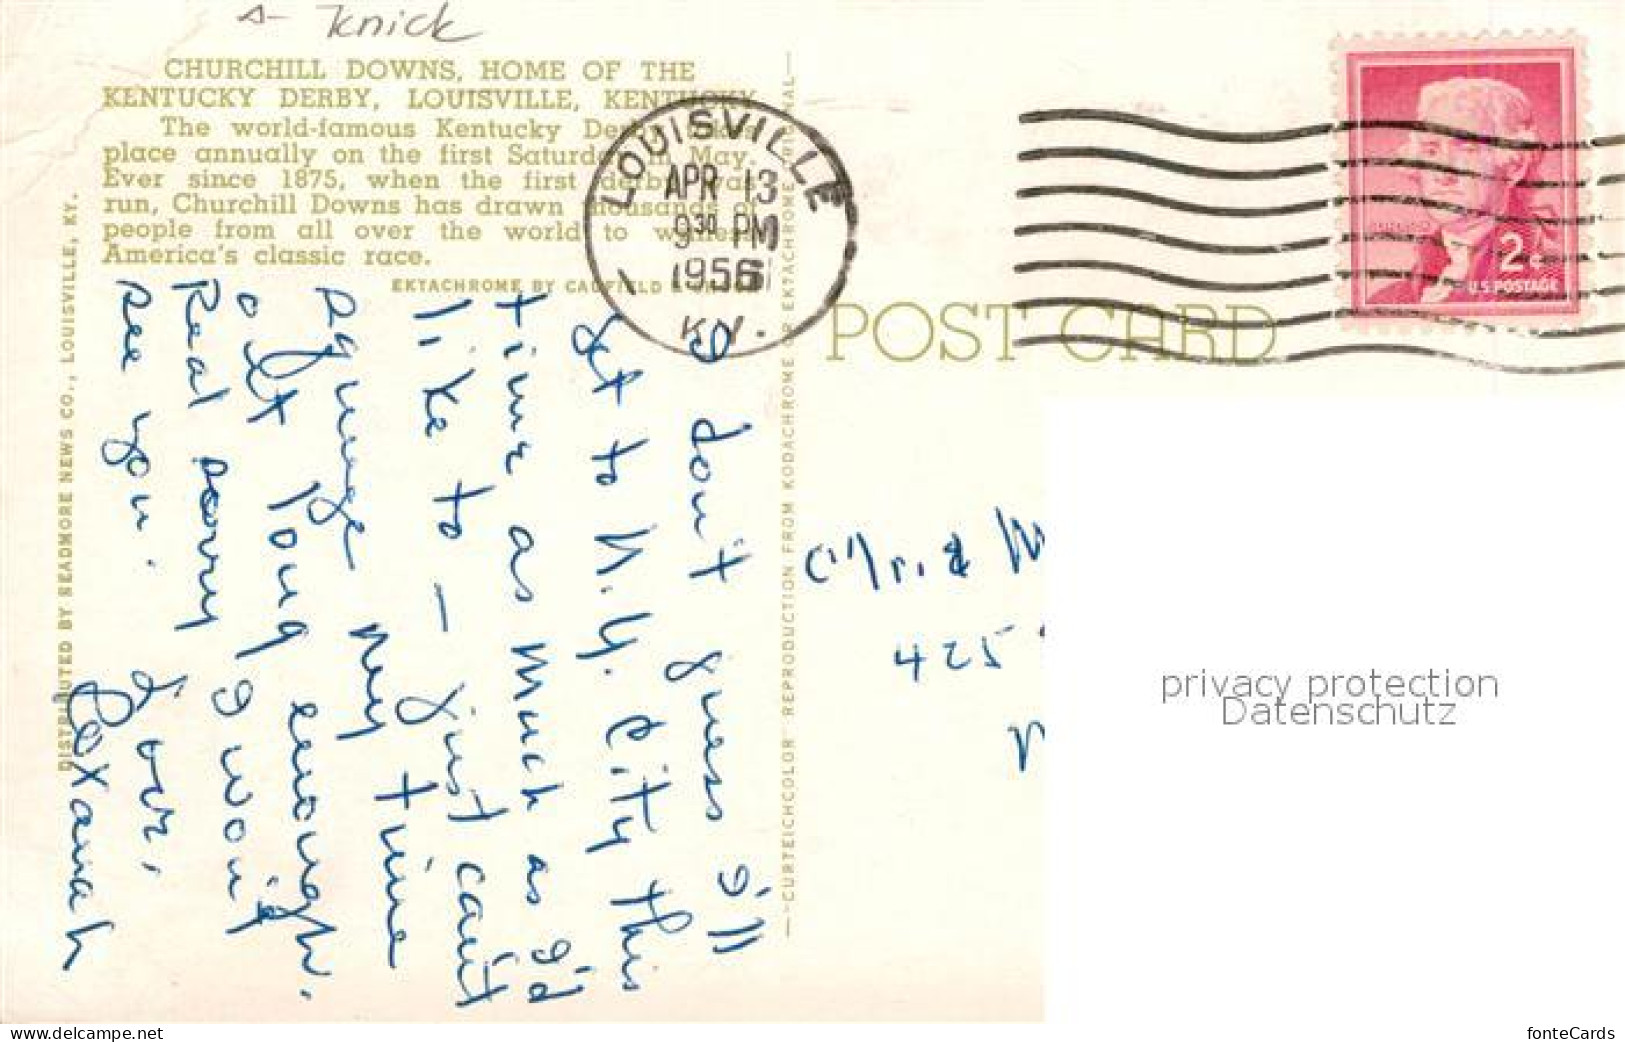 s- Knick
CHURCHILL DOWNS, HOME OF THE
KENTUCKY DERBY, LOUISVILLE, KENTUCKY
The world-famous Kentucky Derby takes
place annually on the first Saturday in May.
Ever since 1875, when the first derby was
run, Churchill Downs has drawn thousands of
people from all over the world to witness
America's classic race.
EKTACHROME BY CAUFIELD &
DISTRIBUTED BY READMORE NEWS CO., LOUISVILLE, KY.
I don't guess I'll
get to N.Y. City this
time as much as I'd
like to - just can't
squeeze my time
out long enough.
Real sorry I won't
see you.
Love,
LOUISVILLE
APR 13
9 30 PM
1956
KY.
—"CURTEICHCOLOR" REPRODUCTION FROM KODACHROME OR EKTACHROME ORIGINAL—
POST CARD
2¢
U.S. POSTAGE
425
privacy protection
Datenschutz
see more at www.ak-ansichtskarten.de
fonteCards